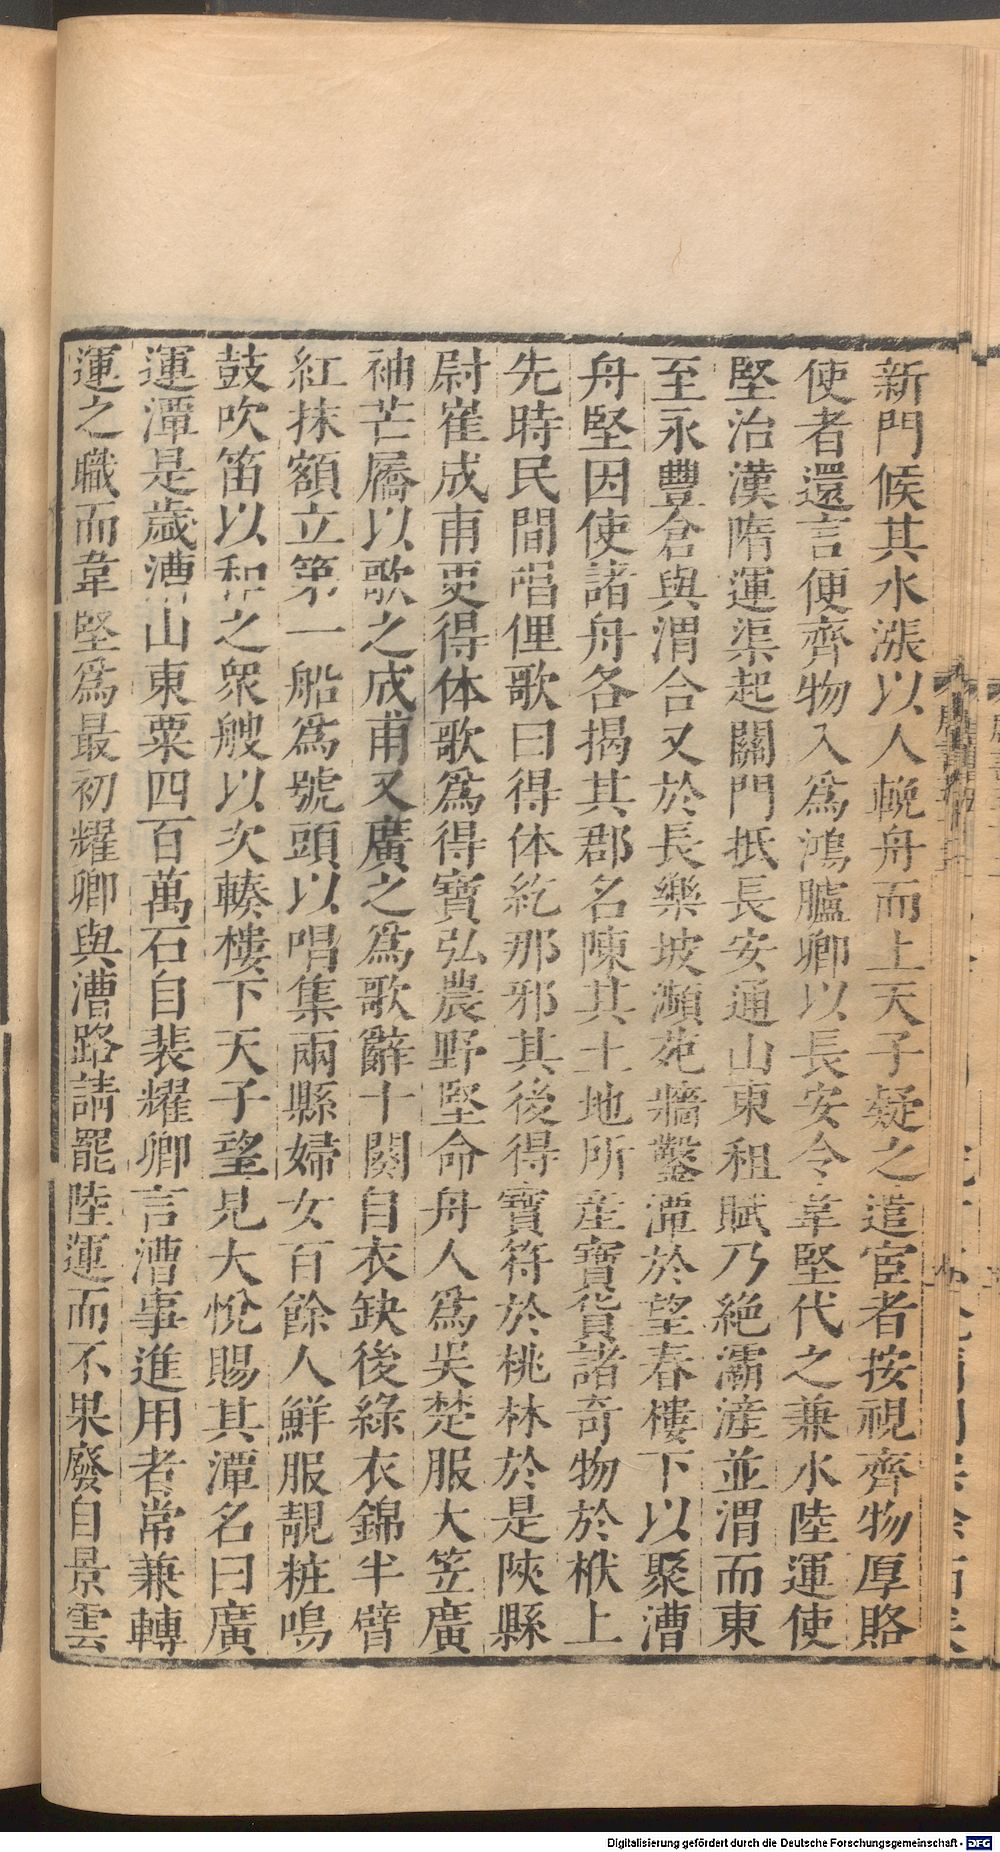 新門候其水漲以人輓舟而上天子疑之遣宦者按視齊物厚賂
使者還言便齊物入為鴻臚卿以長安令韋堅代之兼水陸運使
堅治漢隋運渠起關門抵長安通山東租賦乃絕灞滻並渭而東
至永豐倉與渭合又於長樂坡瀕苑牆鑿潭於望春樓下以聚漕
舟堅因使諸舟各揭其郡名陳其土地所産寶貨諸奇物於栿上
先時民間唱俚歌曰得体紇那邪其後得寶符於桃林於是陝縣
尉崔成甫更得体歌爲得寶弘農野堅命舟人爲吳楚服大笠廣
袖芒屩以歌之成甫又廣之爲歌辭十闋自衣缺後綠衣錦半臂
紅抹額立第一船爲號頭以唱集兩縣婦女百餘人鮮服靚粧鳴
鼓吹笛以和之衆艘以次輳樓下天子望見大悅賜其潭名曰廣
運潭是歲漕山東粟四百萬石自裴耀卿言漕事進用者常兼轉
運之職而韋堅爲最初耀卿興漕路請罷陸運而不果廢自景雲
Digitalisierung gefördert durch die Deutsche Forschungsgemeinschaft - DFG